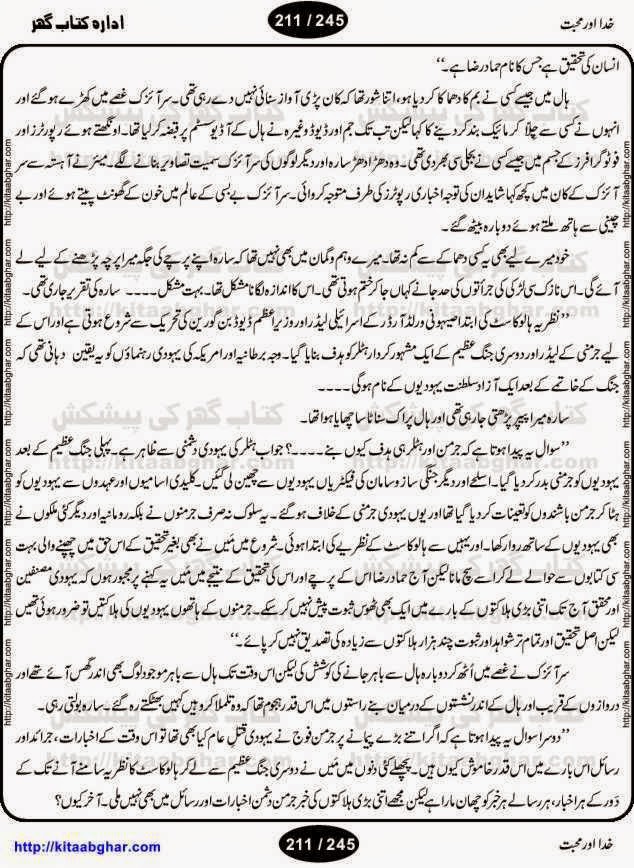 ادارہ کتاب گھر
211 / 245
خدا اور محبت
انسان کی تحقیق ہے جس کا نام حماد رضا ہے۔‘‘
ہال میں جیسے کسی نے بم کا دھماکا کر دیا ہو، اتنا شور تھا کہ کان پڑی آواز سنائی نہیں دے رہی تھی۔ سر آئزک غصے میں کھڑے ہو گئے اور
انہوں نے کسی سے چلا کر مائیک بند کر دینے کا کہا لیکن تب تک جم اور ڈیوڈ وغیرہ نے ہال کے آڈیو سسٹم پر قبضہ کر لیا تھا۔ اونگھتے ہوئے رپورٹرز اور
فوٹو گرافرز کے جسم میں جیسے کسی نے بجلی سی بھر دی تھی۔ وہ دھڑا دھڑ سارہ اور دیگر لوگوں کی سر آئزک سمیت تصاویر بنانے لگے۔ میئر نے آہستہ سے سر
آئزک کے کان میں کچھ کہا شاید ان کی توجہ اخباری رپورٹرز کی طرف متوجہ کروائی۔ سر آئزک بے بسی کے عالم میں خون کے گھونٹ پیتے ہوئے اور بے
چینی سے ہاتھ ملتے ہوئے دوبارہ بیٹھ گئے۔
خود میرے لیے بھی یہ کسی دھماکے سے کم نہ تھا۔ میرے وہم و گمان میں بھی نہیں تھا کہ سارہ اپنے پرچے کی جگہ میرا پرچہ پڑھنے کے لیے لے
آئے گی۔ اس نازک سی لڑکی کی جرأتوں کی حد جانے کہاں جا کر ختم ہوتی تھی۔ اس کا اندازہ لگانا مشکل تھا۔ بہت مشکل۔۔۔۔ سارہ کی تقریر جاری تھی۔
’’نظریہ ہالوکاسٹ کی ابتدا صیہونی ورلڈ آرڈر کے اسرائیلی لیڈر اور وزیر اعظم ڈیوڈ بن گورین کی تحریک سے شروع ہوئی ہے اور اس کے
لیے جرمنی کے لیڈر اور دوسری جنگ عظیم کے ایک مشہور کردار ہٹلر کو ہدف بنایا گیا۔ وجہ برطانیہ اور امریکہ کی یہودی رہنماؤں کو یہ یقین دہانی تھی کہ
جنگ کے خاتمے کے بعد ایک آزاد سلطنت یہودیوں کے نام ہوگی۔۔۔۔
سارہ میرا پیپر پڑھتی جا رہی تھی اور ہال پر اک سناٹا سا چھایا ہوا تھا۔
’’سوال یہ پیدا ہوتا ہے کہ جرمن اور ہٹلر ہی ہدف کیوں بنے۔۔۔۔؟ جواب ہٹلر کی یہودی دشمنی سے ظاہر ہے۔ پہلی جنگ عظیم کے بعد
یہودیوں کو جرمنی بدر کر دیا گیا۔ اسلحے اور دیگر جنگی ساز و سامان کی فیکٹریاں یہودیوں سے چھین لی گئیں۔ کلیدی اسامیوں اور عہدوں سے یہودیوں کو
ہٹا کر جرمن باشندوں کو تعینات کر دیا گیا تھا اور یوں یہودی جرمنی کے خلاف ہو گئے۔ یہ سلوک نہ صرف جرمنوں نے بلکہ رومانیہ اور دیگر کئی ملکوں نے
بھی یہودیوں کے ساتھ روا رکھا۔ اور یہیں سے ہالوکاسٹ کے نظریے کی ابتدا ہوئی۔ شروع میں میں نے بھی بغیر تحقیق کے اس حق میں چھپنے والی بہت
سی کتابوں سے حوالے لے کر اسے سچ مانا لیکن آج حماد رضا اس کے پرچے اور اس کی تحقیق کے نتیجے میں میں یہ کہنے پر مجبور ہوں کہ یہودی مصنفین
اور محقق آج تک اتنی بڑی ہلاکتوں کے بارے میں ایک بھی ٹھوس ثبوت پیش نہیں کر سکے۔ جرمنوں کے ہاتھوں یہودیوں کی ہلاکتیں تو ضرور ہوئی تھیں
لیکن اصل تحقیق اور تمام تر شواہد اور ثبوت چند ہزار ہلاکتوں سے زیادہ کی تصدیق نہیں کر پائے۔‘‘
سر آئزک نے غصے میں اُٹھ کر دوبارہ ہال سے باہر جانے کی کوشش کی لیکن اس وقت تک ہال سے باہر موجود لوگ بھی اندر گھس آئے تھے اور
دروازوں کے قریب اور ہال کے اندر نشستوں کے درمیان بنے راستوں میں اس قدر ہجوم تھا کہ وہ تلملا کر وہیں کہیں بھٹکتے رہ گئے۔ سارہ بولتی رہی۔
’’دوسرا سوال یہ پیدا ہوتا ہے کہ اگر اتنے بڑے پیمانے پر جرمن فوج نے یہودی قتلِ عام کیا بھی تھا تو اس وقت کے اخبارات، جرائد اور
رسائل اس بارے میں اس قدر خاموش کیوں ہیں۔ پچھلے کئی دنوں میں میں نے دوسری جنگ عظیم سے لے کر ہالوکاسٹ کا نظریہ سامنے آنے تک کے
دَور کے ہر اخبار، ہر رسالے ہر خبر کو چھان مارا ہے لیکن مجھے اتنی بڑی ہلاکتوں کی خبر جرمن دشمن اخبارات اور رسائل میں بھی نہیں ملی۔ آخر کیوں؟
http://kitaabghar.com
211 / 245
خدا اور محبت
کتاب گھر کی پیشکش
http://kitaabghar.com